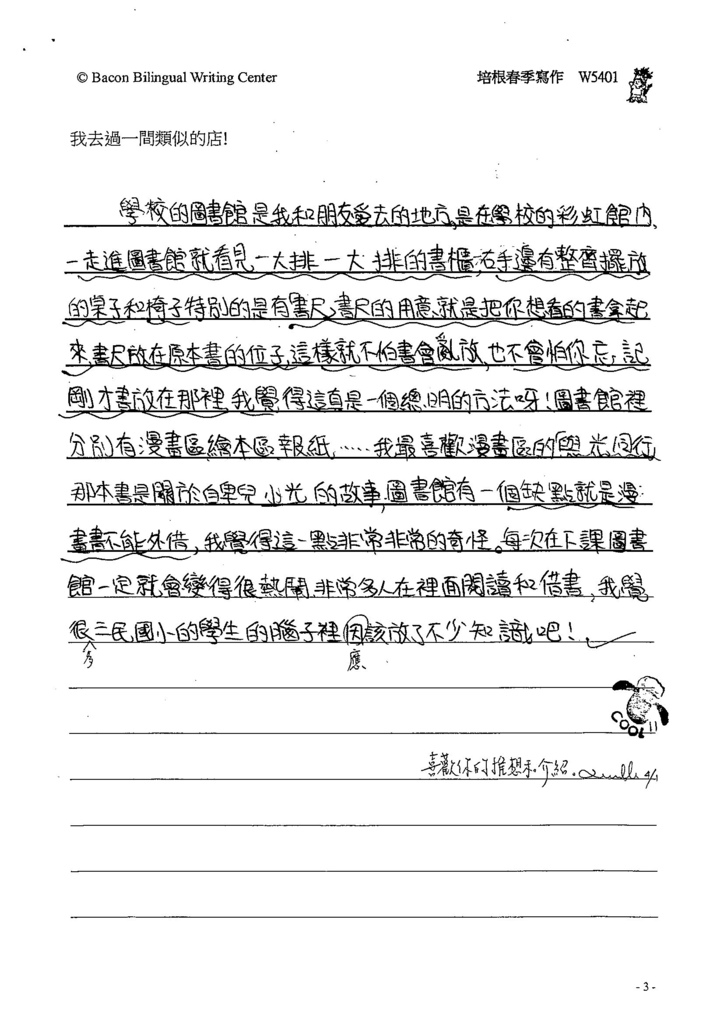 © Bacon Bilingual Writing Center 培根春季寫作 W5401
我去過一間類似的店!
學校的圖書館是我和朋友愛去的地方,是在學校的彩虹館內,
一走進圖書館就看見一大排一大排的書櫃,右手邊有整齊擺放
的桌子和椅子特別的是有「書尺」,書尺的用意就是把你想看的書拿起
來,書尺放在原本書的位子,這樣就不怕書會亂放,也不會怕你忘記
剛才書放在那裡,我覺得這真是一個總明的方法呀!圖書館裡
分別有漫畫區,繪本區,報紙……我最喜歡漫畫區的與光同行,
那本書是關於自卑兒小光的故事,圖書館有一個缺點就是漫
畫書不能外借,我覺得這一點非常非常的奇怪。每次在下課圖書
館一定就會變得很熱鬧,非常多人在裡面閱讀和借書,我覺
很三民國小的學生的腦子裡因該放了不少知識吧!
多 應
COOL!!
喜歡你的推想和介紹. 4/1
- 3 -